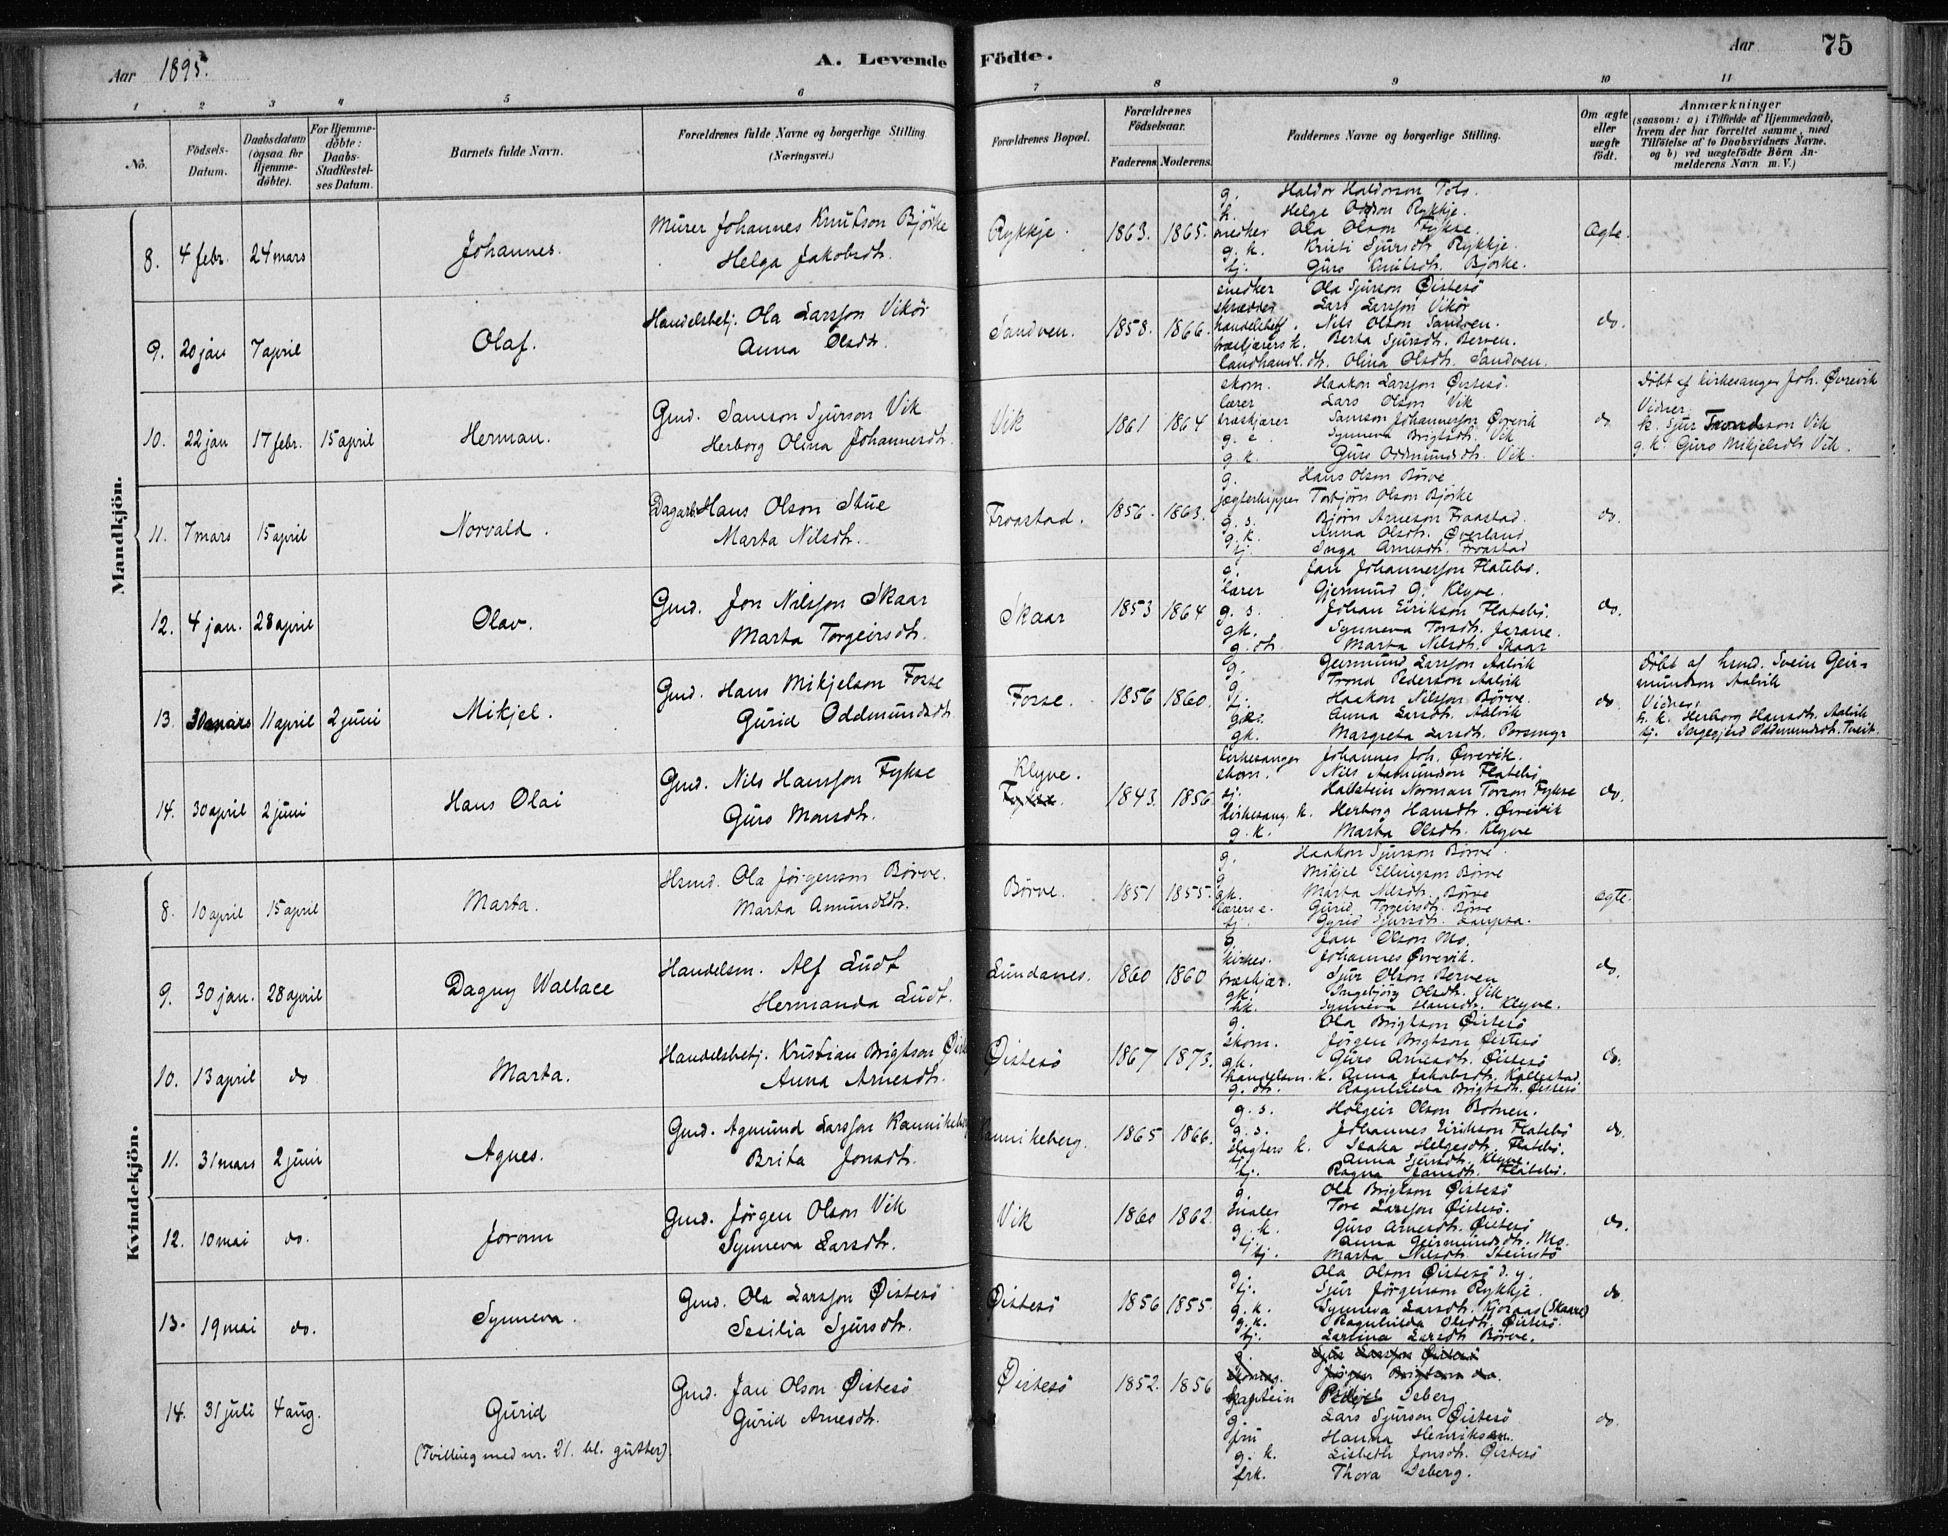 Aar 1895. A. Levende Födte. Aar 75
1 2 3 4 5 6 7 8 9 10 11
No.
Födsels-Datum.
Daabsdatum (ogsaa for Hjemme-döbte).
For Hjemme-döbte: Daabs-Stadfestel-ses Datum.
Barnets fulde Navn.
Forældrenes fulde Navne og borgerlige Stilling (Næringsvei.)
Forældrenes Bopæl.
Forældrenes Födselsaar.
Faderens. Moderens.
Faddernes Navne og borgerlige Stilling.
Om ægte eller uægte födt.
Anmærkninger
(saasom: a) i Tilfælde af Hjemmedaab,
hvem der har forrettet samme, med
Tilföielse af to Daabsvidners Navne.
og b) ved uægtefödte Börn An-
melderens Navn m. V.)
Mandkjön.
8. 4 febr. 24 mars Johannes. Murer Johannes Knutson Bjørke
Helga Jakobsdtr.
Rykkje. 1863. 1865. Ægte.
g. Haldor Haldorson Tolo.
h. Helge Oddson Rykkje.
snedker Ola Olson Fykse.
g. k. Kristi Sjursdtr. Rykkje.
tj. Guro Knutsdtr. Bjørke.
9. 20 jan 7 april Olaf. Handelsbetj. Ola Larsson Vikör
Anna Olsdtr.
Sandven. 1858. 1866. do.
snedker Ola Sjurson Øistesö
skrædder Lars Larsson Vikör
handelsbetj. Nils Olson Sandven.
træskjærers k. Berta Sjursdtr. Berven.
landhandl. dtr. Olina Olsdtr. Sandven.
10. 22 jan 17 febr. 15 april Herman. Gmd. Samson Sjurson Vik
Herborg Olina Johannesdtr.
Vik 1861 1864 do
skom. Haakon Larsson Øistesö.
lærer Lars Olson Vik
træskjærer Samson Johannesson Øvrevik
g. e. Synneva Brigtsdtr. Vik
g. k. Guro Oddmundsdtr. Vik.
Döbt af kirkesanger Joh. Øvrevik
Vidner
k. Sjur Trondson Vik
g. k. Guro Mikjelsdtr. Vik.
11. 7 mars 15 april Norvald. Dagarb. Hans Olson Stue
Marta Nilsdtr.
Froastad. 1856. 1863. do.
g. Hans Olson Børve
jægteskipper Torbjörn Olson Bjørke
g. s. Bjørn Arneson Froastad.
g. k. Anna Olsdtr. Øverland
tj. Inga Arnesdtr. Froastad
12. 4 jan. 28 april Olav. Gmd. Jon Nilsson Skaar
Marta Torgeirsdtr.
Skaar 1853 1864 do.
g. Jan Johannesson Flatebö.
lærer Gjermund G. Klyve.
g. s. Johan Eirikson Flatebö.
gk. Synneva Torsdtr. Jarane.
g. dt. Marta Nilsdtr. Skaar
13. 30 mars 11 april 2 juni Mikjel. Gmd. Hans Mikjelson Fosse
Gurid Oddmundsdtr.
Fosse. 1856 1860. do.
g. Geirmund Larsson Aalvik
g. Trond Pederson Aalvik
tj. Haakon Nilsson Børve.
Anna Larsdtr. Aalvik
gk. Margreta Larsdtr.
Döbt af husmd. Svein Geir=
mundson Aalvik
Vidner:
h. k. Herborg Hansdtr. Aalvik
tj. Ingegjerd Oddmundsdtr. Tveit.
14. 30 april 2 juni Hans Olai Gmd. Nils Hansson Fykse
Guro Monsdtr.
Klyve.
Fykse. 1843. 1856 do.
kirkesanger Johannes Joh. Øvrevik.
skom. Nils Aamundson Flatebö
tj. Halstein Norman Torson Fykse
kirkesang. k. Herborg Hansdtr. Øvrevik
g. k. Marta Olsdtr. Klyve
Kvindekjön.
8. 10 april 15 april Marta. Husmd. Ola Jörgenson Börve.
Marta Amundsdtr.
Börve. 1851 1855. Ægte.
g. Haakon Sjurson Börve.
g Mikjel Ellingson Börve
gk. Marta Nilsdtr. Börve
lærers e. Gurid Torgeirsdtr. Börve
tj. Gyrid Sjursdtr. Laupsa.
9. 30 jan. 28 april Dagny Wallace Handelsm. Alf Ludt
Hermanda Ludt.
Lundanes. 1860 1860 do.
g. Jan Olson Mo.
kirkes. Johannes Øvrevik.
træskjær. Sjur Olson Berven
gk. Ingebjörg Olsdtr. Vik
hk. Synneva Hansdtr. Klyve.
10. 13 april do Marta. Handelsbetj. Kristian Brigtson Øist
Anna Arnesdtr.
Øistesö 1867 1873. do.
g. Ola Brigtson Øistesö
skom. Jörgen Brigtson Øistesö
gk. Guro Arnesdtr. Øistesö
handelsm. k. Anna Jakobsdtr. Kallestad.
g. dtr. Ragnhilda Brigtsdtr. Øistesö
11. 31 mars 2 juni Agnes. Gmd. Agmund Larsson Kannikeberg
Brita Jonsdtr.
Kannikeberg. 1865 1866. do.
g. s. Holgeir Olson Botnen.
g. s. Johannes Eirikson Flatebö
slagters k. Helgesdtr. Flatebö.
tj. Anna Sjursdtr. Klyve
tj. Ragna Jansdtr. Flatebö.
12. 10 mai do. Joronn Gmd. Jörgen Olson Vik
Synneva Larsdtr.
Vik 1860 1862. do.
g. Ola Brigtson Øistesö
Tore Larsson Øistesö.
g. k. Guro Arnesdtr. Øistesö
tj. Anna Geirmundsdtr. Mo.
tj. Marta Nilsdtr. Steinstö
13. 19 mai do. Synneva. Gmd. Ola Larsson Øistesö
Sesilia Sjursdtr.
Øistesö 1856 1855. do.
g. Ola Olson Øistesö d. y.
tj. Sjur Jörgenson Rykkje.
g. k. Synneva Larsdtr. Kjosaas (Skaare)
g. k. Ragnhilda Olsdtr. Øistesö.
tj. Larsina Larsdtr. Börve.
14. 31 juli 4 aug. Gurid
(Tvilling med nr. 21. bl. gutter)
Gmd. Jan Olson Øistesö
Gurid Arnesdtr.
Øistesö 1852. 1856 do.
g. Sjur Larsson Øistesö
Jörgen Brigtson do.
kaptein Isberg
g. Lars Sjurson Øistesö
fru Hanna Henriksen.
g. k. Lisbeth Jonsdtr. Øistesö
frk. Thora Isberg.